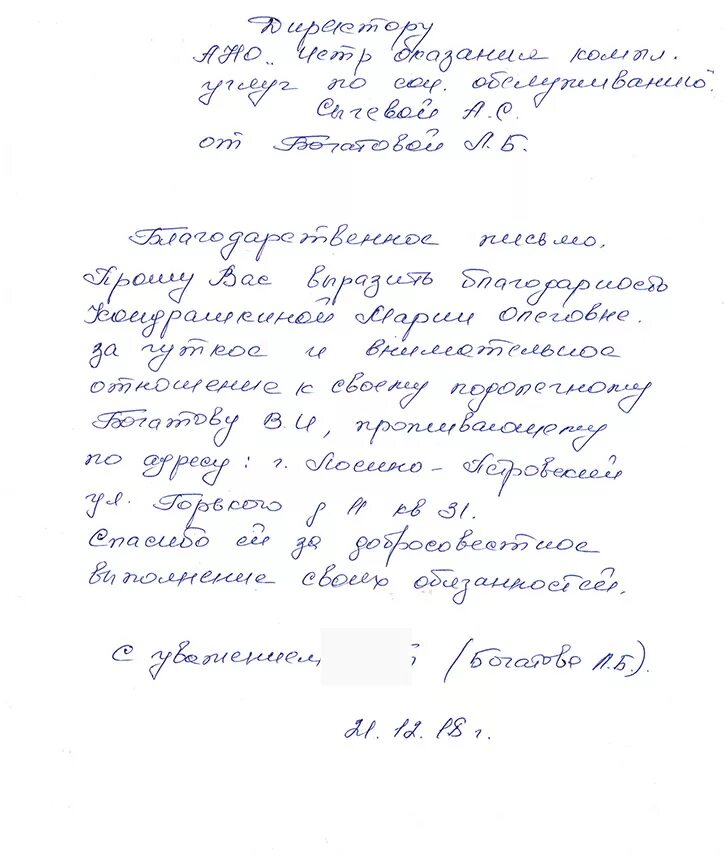 Директору
АНО „Цетр оказания компл.
услуг по соц. обслуживанию"
Сычевой А.С.
от Богатовой Л.Б.
Благодарственное письмо.
Прошу Вас выразить благодарность
Кондрашкиной Марии Олеговне.
за чуткое и внимательное
отношение к своему подопечному
Богатову В.И, проживающему
по адресу: г. Лосино-Петровский
ул. Горького д 11 кв 31.
Спасибо ей за добросовестное
выполнение своих обязанностей.
С уважением (Богатова Л.Б.).
21.12.18 г.